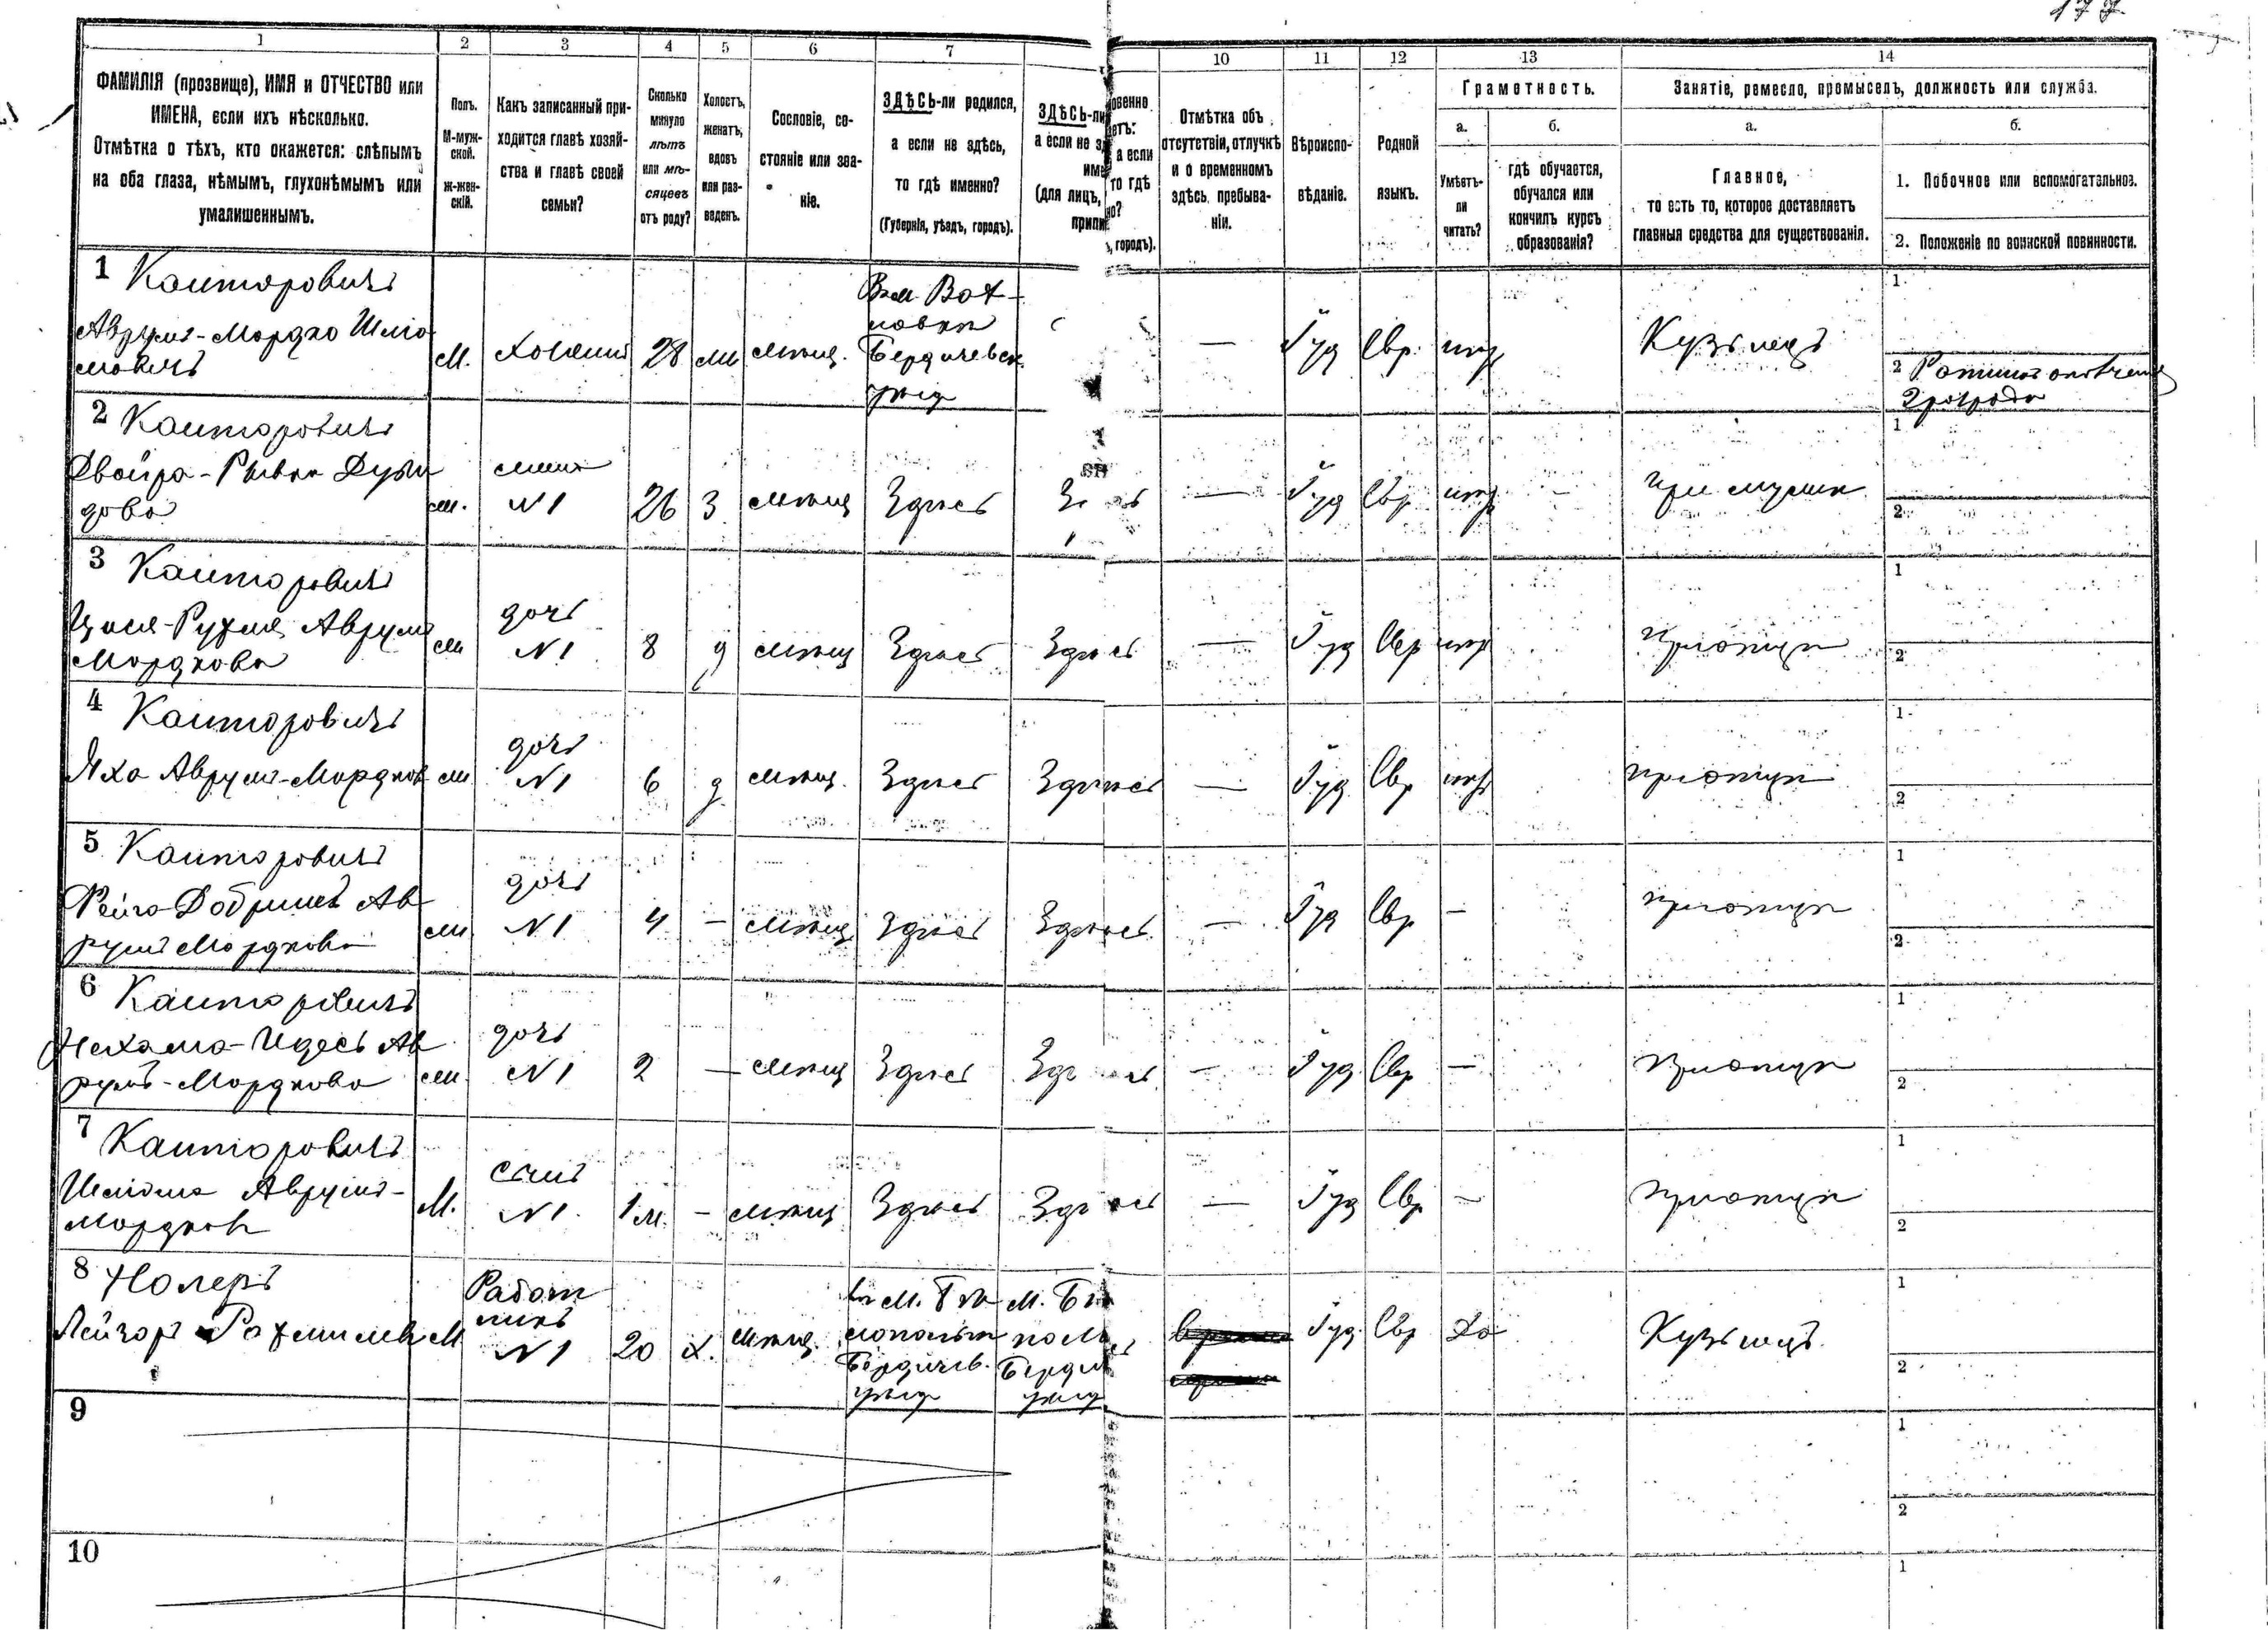 177
1 2 3 4 5 6 7 10 11 12 13 14
ФАМИЛІЯ (прозвище), ИМЯ и ОТЧЕСТВО или
ИМЕНА, если ихъ нѣсколько.
Отмѣтка о тѣхъ, кто окажется: слѣпымъ
на оба глаза, нѣмымъ, глухонѣмымъ или
умалишеннымъ.
Полъ.
М-муж-
ской.
Ж-жен-
скій.
Какъ записанный при-
ходится главѣ хозяй-
ства и главѣ своей
семьи?
Сколько
минуло
лѣтъ
или мѣ-
сяцевъ
отъ роду?
Холостъ,
женатъ,
вдовъ
или раз-
веденъ.
Сословіе, со-
стояніе или зва-
ніе.
ЗДѢСЬ-ли родился,
а если не здѣсь,
то гдѣ именно?
(Губернія, уѣздъ, городъ).
ЗДѢСЬ-ли
а если не з
име
(для лицъ,
припи
овенно
етъ:
а если
то гдѣ
но?
ъ, городъ).
Отмѣтка объ
отсутствіи, отлучкѣ
и о временномъ
здѣсь пребыва-
ніи.
Вѣроиспо-
вѣданіе.
Родной
языкъ.
Грамотность.
а.
Умѣетъ-
ли
читать?
б.
гдѣ обучается,
обучался или
кончилъ курсъ
образованія?
Занятіе, ремесло, промыселъ, должность или служба.
а.
Главное,
то есть то, которое доставляетъ
главныя средства для существованія.
б.
1. Побочное или вспомогательное.
2. Положеніе по воинской повинности.
1 Канторовичъ
Аврумъ-Мордко Шлио
мовичъ
М. Хозяинъ 28 мѣщ.
Бердичевск
уѣзд
— Іуд Евр. нѣт Кузнецъ
1
2 Ратникъ ополченія
2 разряда
2 Канторовичъ
Двойра-Ривка
дова
жена
№1 26 З мѣщ Здѣсь — Іуд Евр нѣт при мужѣ
1
2
3 Канторовичъ
Аврумъ
Мордкова
дочь
№1 8 д мѣщ Здѣсь Здѣсь — Іуд Евр нѣт при отцѣ
1
2
4 Канторовичъ
Аврумъ-Мордков
дочь
№1 6 д мѣщ. Здѣсь Здѣсь — Іуд Евр нѣт при отцѣ
1
2
5 Канторовичъ
Фейга-Добришъ Ав
румъ Мордкова
дочь
№1 4 — мѣщ Здѣсь Здѣсь — Іуд Евр — при отцѣ
1
2
6 Канторовичъ
Нехама-Идесь Ав
румъ-Мордкова
дочь
№1 2 — мѣщ Здѣсь Здѣсь — Іуд Евр — при отцѣ
1
2
7 Канторовичъ
Шліома Аврумъ-
Мордков
М.
сынъ
№1 1 м. — мѣщ Здѣсь Здѣсь — Іуд Евр — при отцѣ
1
2
8
Лейзоръ
М
Работ
никъ
№1 20 х. мѣщ.
въ м. Бѣ
лопольѣ
Бердичев.
уѣзд
М. Бѣ
Бердич
уѣзд
Іуд. Евр Да Кузнецъ.
1
2
9
1
2
10
1